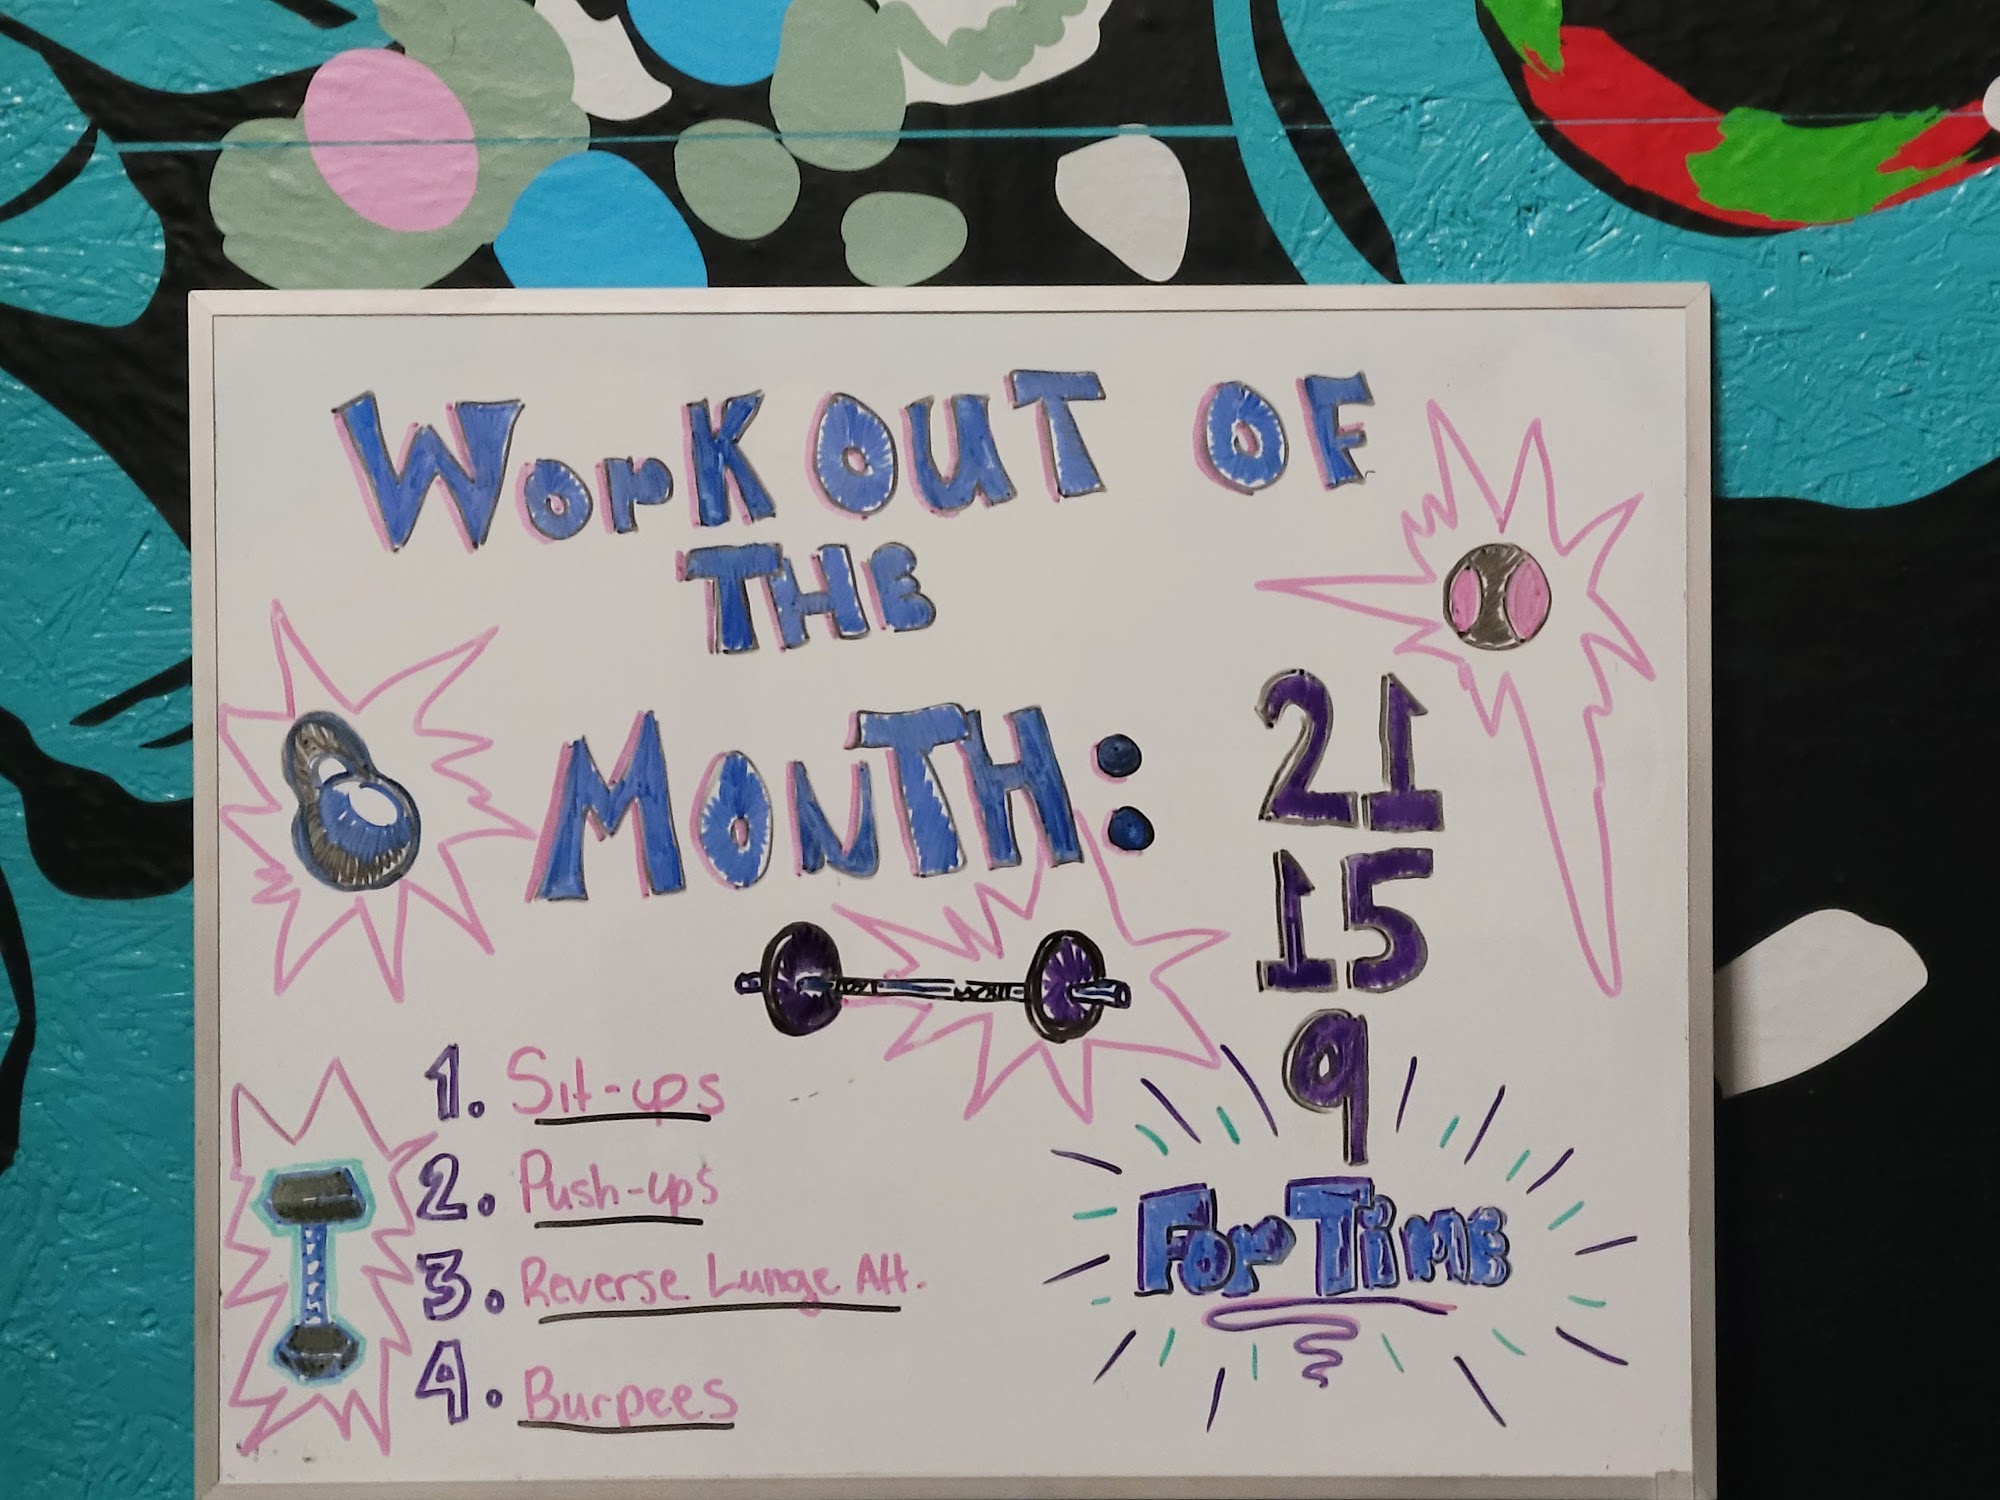 Workout of
the
Month:
21
15
9
For Time
1. Sit-ups
2. Push-ups
3. Reverse Lunge Alt.
4. Burpees